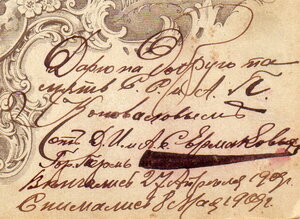 Дарю на добрую па
мять С. Е. и А. П.
Коноваловымъ
Отъ Д. И. и А. С. Ермаковыхъ
Гор. Пермь
Венчались 27 Апреля 1909 г.
Снимались 8 Мая 1909 г.